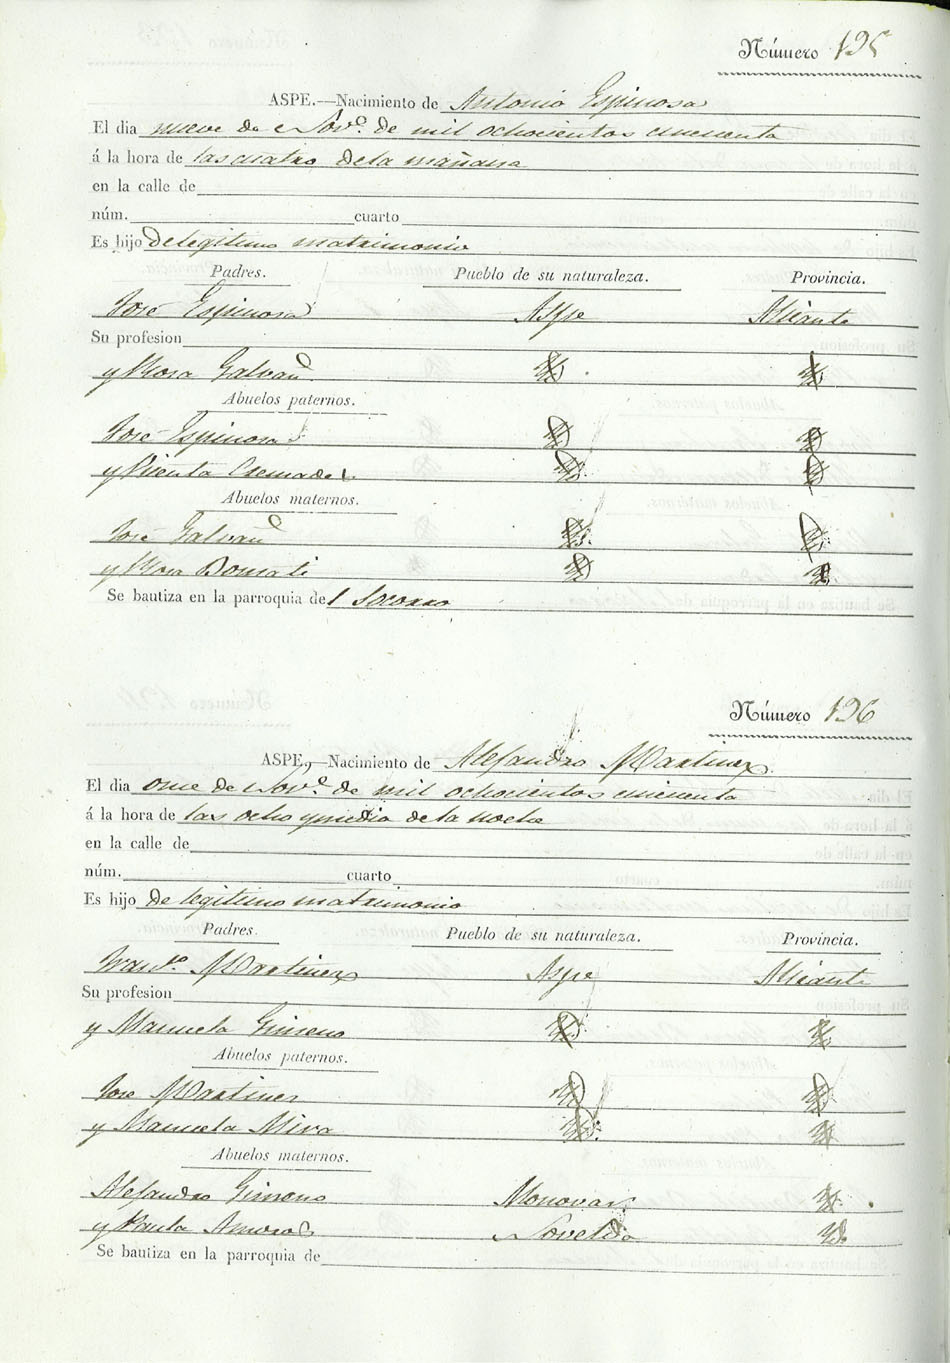 Número 195
ASPE.—Nacimiento de Antonio Espinosa
El dia nueve de Nov.e de mil ochocientos cincuenta
á la hora de las cuatro de la mañana
en la calle de
núm. cuarto
Es hijo de legitimo matrimonio
Padres. Pueblo de su naturaleza. Provincia.
José Espinosa Aspe Alicante
Su profesion
y Rosa Galvañ Yd. Yd.
Abuelos paternos.
José Espinosa Yd. Yd.
y Vicenta Yd. Yd.
Abuelos maternos.
José Galvañ Yd. Yd.
y Rosa Yd. Yd.
Se bautiza en la parroquia del Socorro
Número 196
ASPE,—Nacimiento de Alejandro Martinez
El dia once de Nov.e de mil ochocientos cincuenta
á la hora de las ocho y media de la noche
en la calle de
núm. cuarto
Es hijo de legitimo matrimonio
Padres. Pueblo de su naturaleza. Provincia.
Fran.co Martinez Aspe Alicante
Su profesion
y Manuela Gimeno Yd. Yd.
Abuelos paternos.
José Martinez Yd. Yd.
y Manuela Mira Yd. Yd.
Abuelos maternos.
Alejandro Gimeno Monovar Yd.
y Paula Amoros Novelda Yd.
Se bautiza en la parroquia de